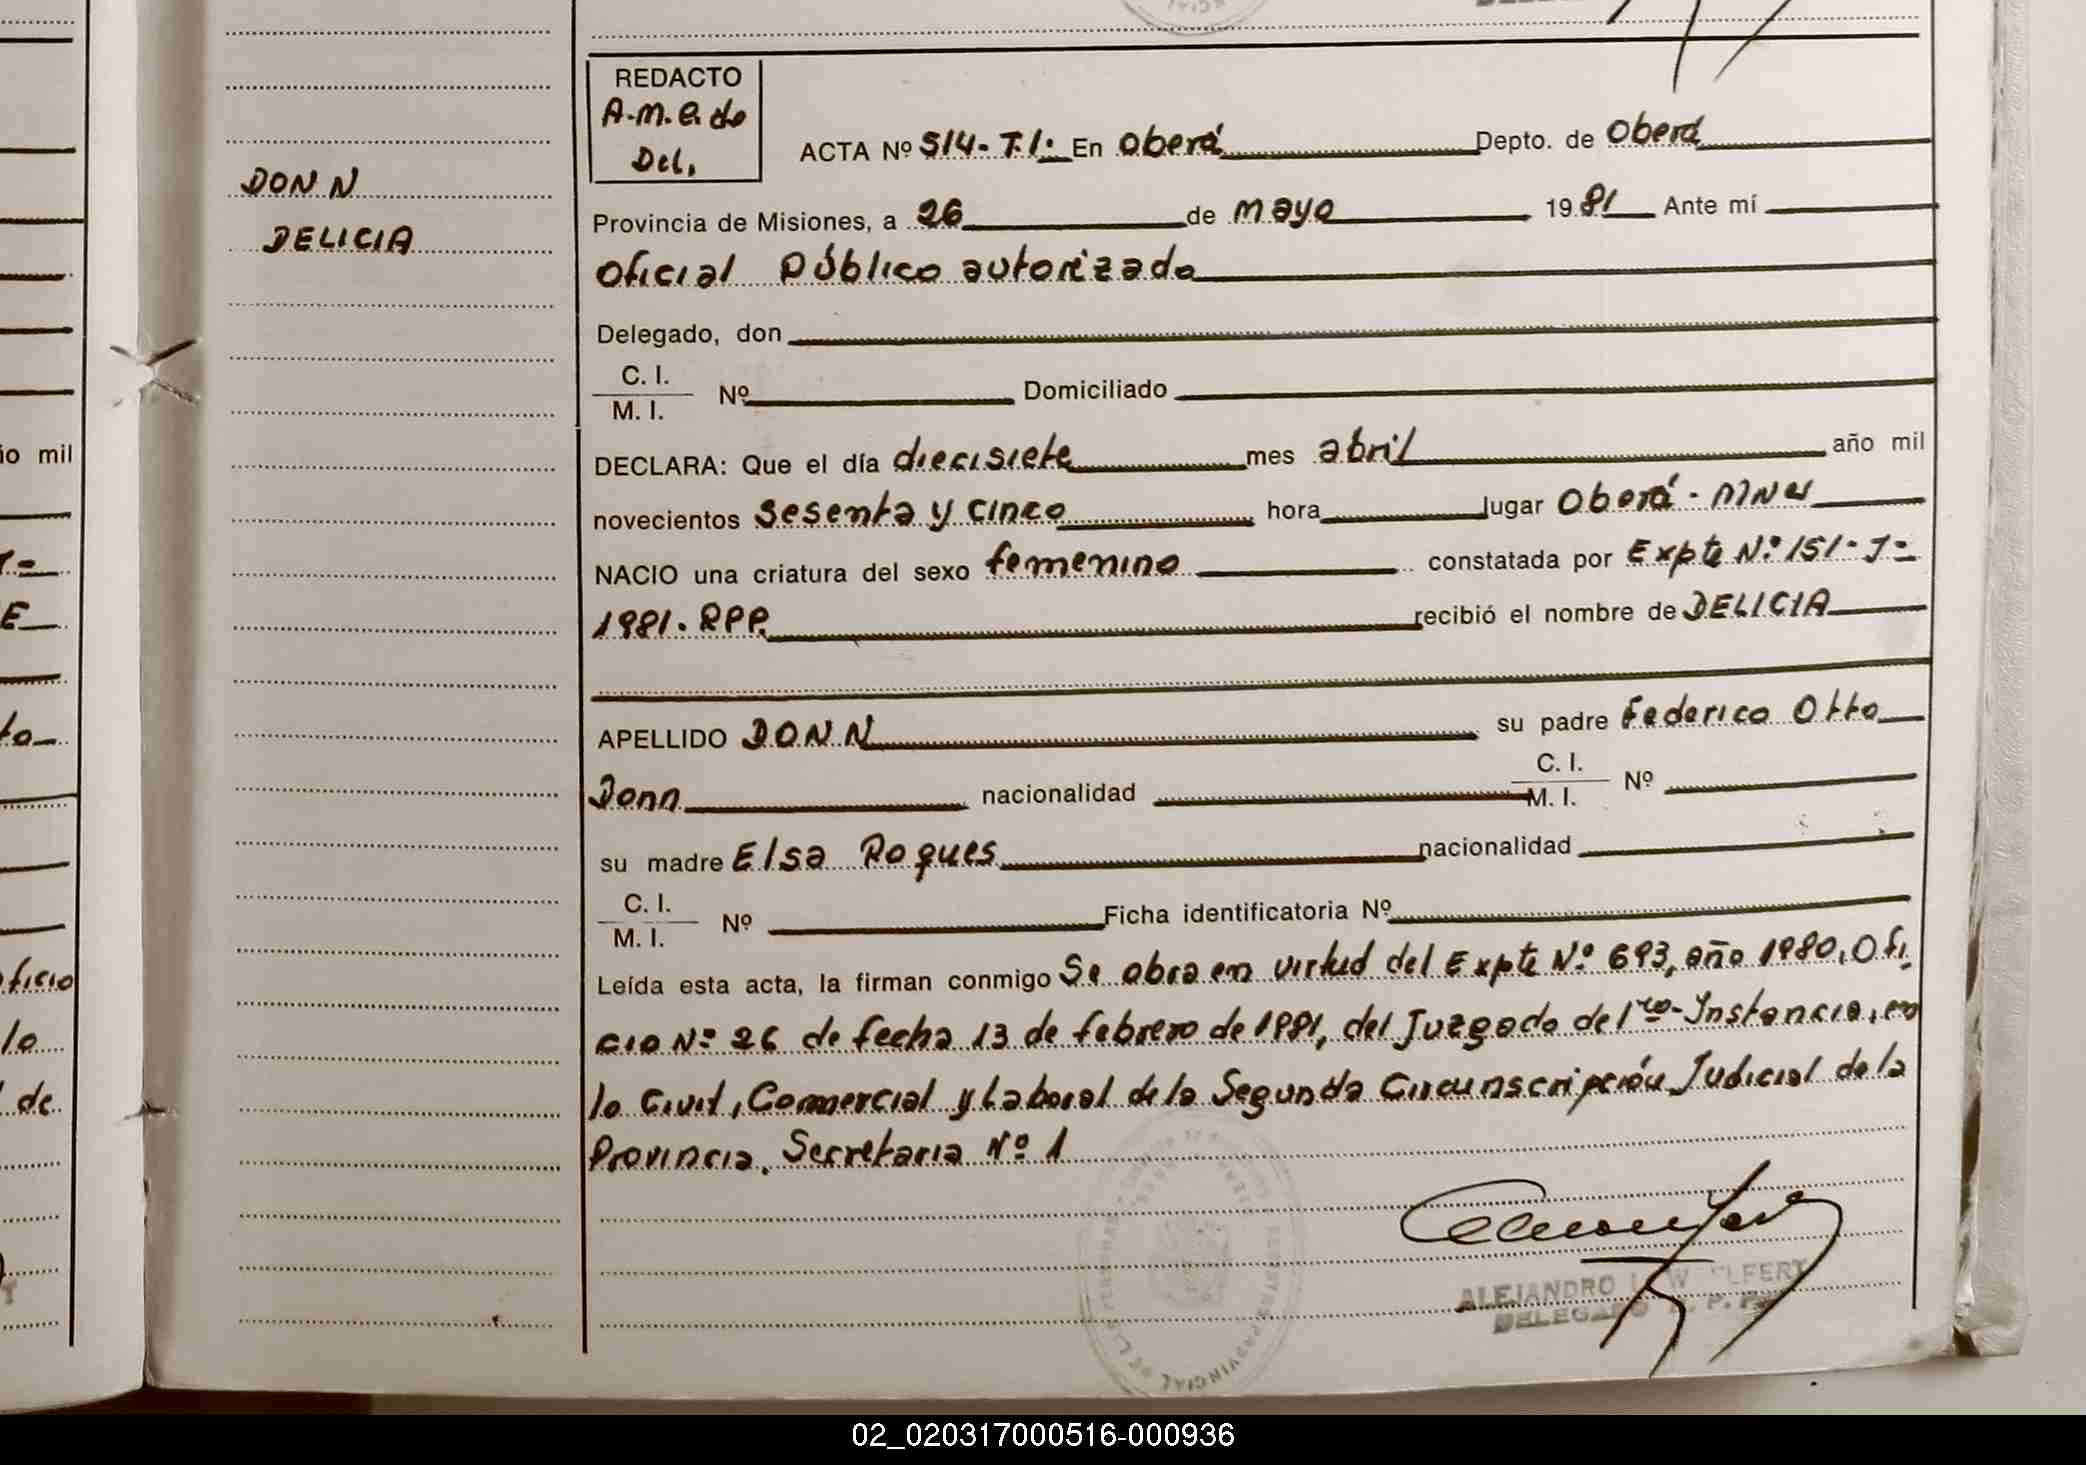 REDACTO
A.M.E. de
Del.
DONN
DELICIA
ACTA Nº 514-T.I. En Oberá Depto. de Oberá
Provincia de Misiones, a 26 de mayo 1981 Ante mí
Oficial Público autorizado
Delegado, don
C. I.
M. I. Nº Domiciliado
DECLARA: Que el día diecisiete mes abril año mil
novecientos sesenta y cinco hora lugar Oberá - Mnes
NACIO una criatura del sexo femenino constatada por Expte N.º 151-J-
1981. RPP. recibió el nombre de DELICIA
APELLIDO DONN su padre Federico Otto
Donn nacionalidad C. I. M. I. Nº
su madre Elsa Roques nacionalidad
C. I.
M. I. Nº Ficha identificatoria Nº
Leída esta acta, la firman conmigo Se obra en virtud del Expte N.º 693, año 1980, Ofi
cio N.º 26 de fecha 13 de febrero de 1981, del Juzgado de 1ra-Instancia, en
lo Civil, Comercial y Laboral de la Segunda Circunscripción Judicial de la
Provincia, Secretaria Nº 1
ALEJANDRO
DELEGADO R. P. P.
io mil
E
to
ficio
lo
de
02_020317000516-000936